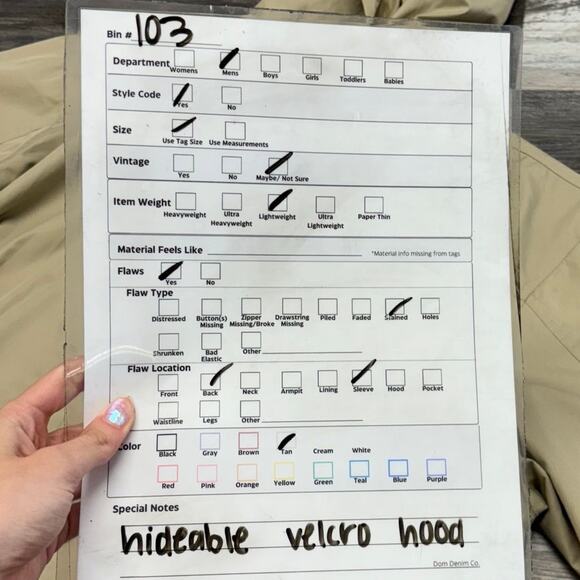 Bin # 103
Department Womens Mens Boys Girls Toddlers Babies
Style Code Yes No
Size Use Tag Size Use Measurements
Vintage Yes No Maybe/ Not Sure
Item Weight Heavyweight Ultra Heavyweight Lightweight Ultra Lightweight Paper Thin
Material Feels Like *Material info missing from tags
Flaws Yes No
Flaw Type
Distressed Button(s) Missing Zipper Missing/Broke Drawstring Missing Piled Faded Stained Holes
Shrunken Bad Elastic Other
Flaw Location
Front Back Neck Armpit Lining Sleeve Hood Pocket
Waistline Legs Other
Color Black Gray Brown Tan Cream White
Red Pink Orange Yellow Green Teal Blue Purple
Special Notes
hideable velcro hood
Dom Denim Co.